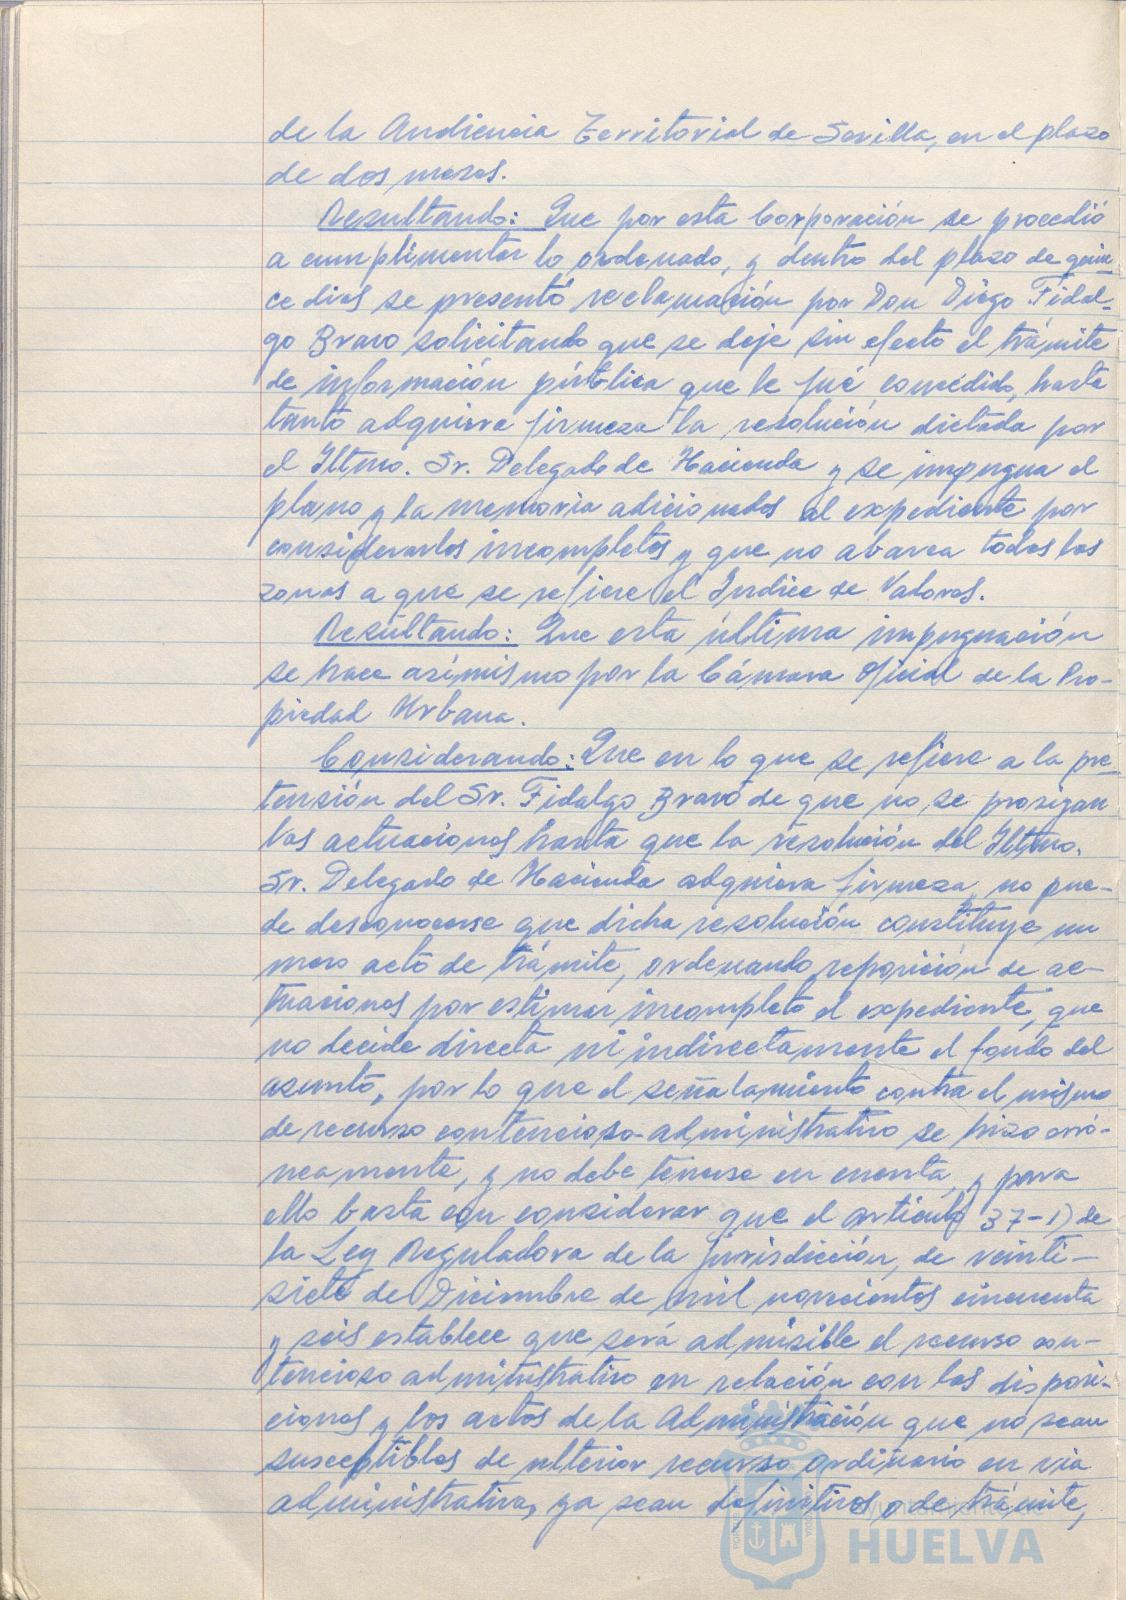 de la Audiencia Territorial de Sevilla, en el plazo
de dos meses.
Resultando: Que por esta Corporación se procedió
a cumplimentar lo ordenado, y dentro del plazo de quin-
ce dias se presentó reclamación por Don Diego Fidal-
go Bravo solicitando que se deje sin efecto el trámite
de información pública que le fué concedido, hasta
tanto adquiera firmeza la resolución dictada por
el Iltmo. Sr. Delegado de Hacienda y se impugna el
plano y la memoria adicionados al expediente por
considerarlos incompletos y que no abarca todas las
zonas a que se refiere el Indice de Valores.
Resultando: Que esta última impugnación
se hace asímismo por la Cámara Oficial de la Pro-
piedad Urbana.
Considerando: Que en lo que se refiere a la pre-
tensión del Sr. Fidalgo Bravo de que no se prosigan
las actuaciones hasta que la resolución del Iltmo.
Sr. Delegado de Hacienda adquiera firmeza, no pue-
de desconocerse que dicha resolución constituye un
mero acto de trámite, ordenando reposición de ac-
tuaciones por estimar incompleto el expediente, que
no decide directa ni indirectamente el fondo del
asunto, por lo que el señalamiento contra el mismo
de recurso contencioso-administrativo se hizo erró-
neamente, y no debe tenerse en cuenta, y para
ello basta con considerar que el artículo 37-1) de
la Ley Reguladora de la jurisdicción, de veinti-
siete de Diciembre de mil novecientos cincuenta
y seis establece que será admisible el recurso con-
tencioso administrativo en relación con las disposi-
ciones y los actos de la Administración que no sean
susceptibles de ulterior recurso ordinario en via
administrativa, ya sean definitivos o de trámite,
HUELVA